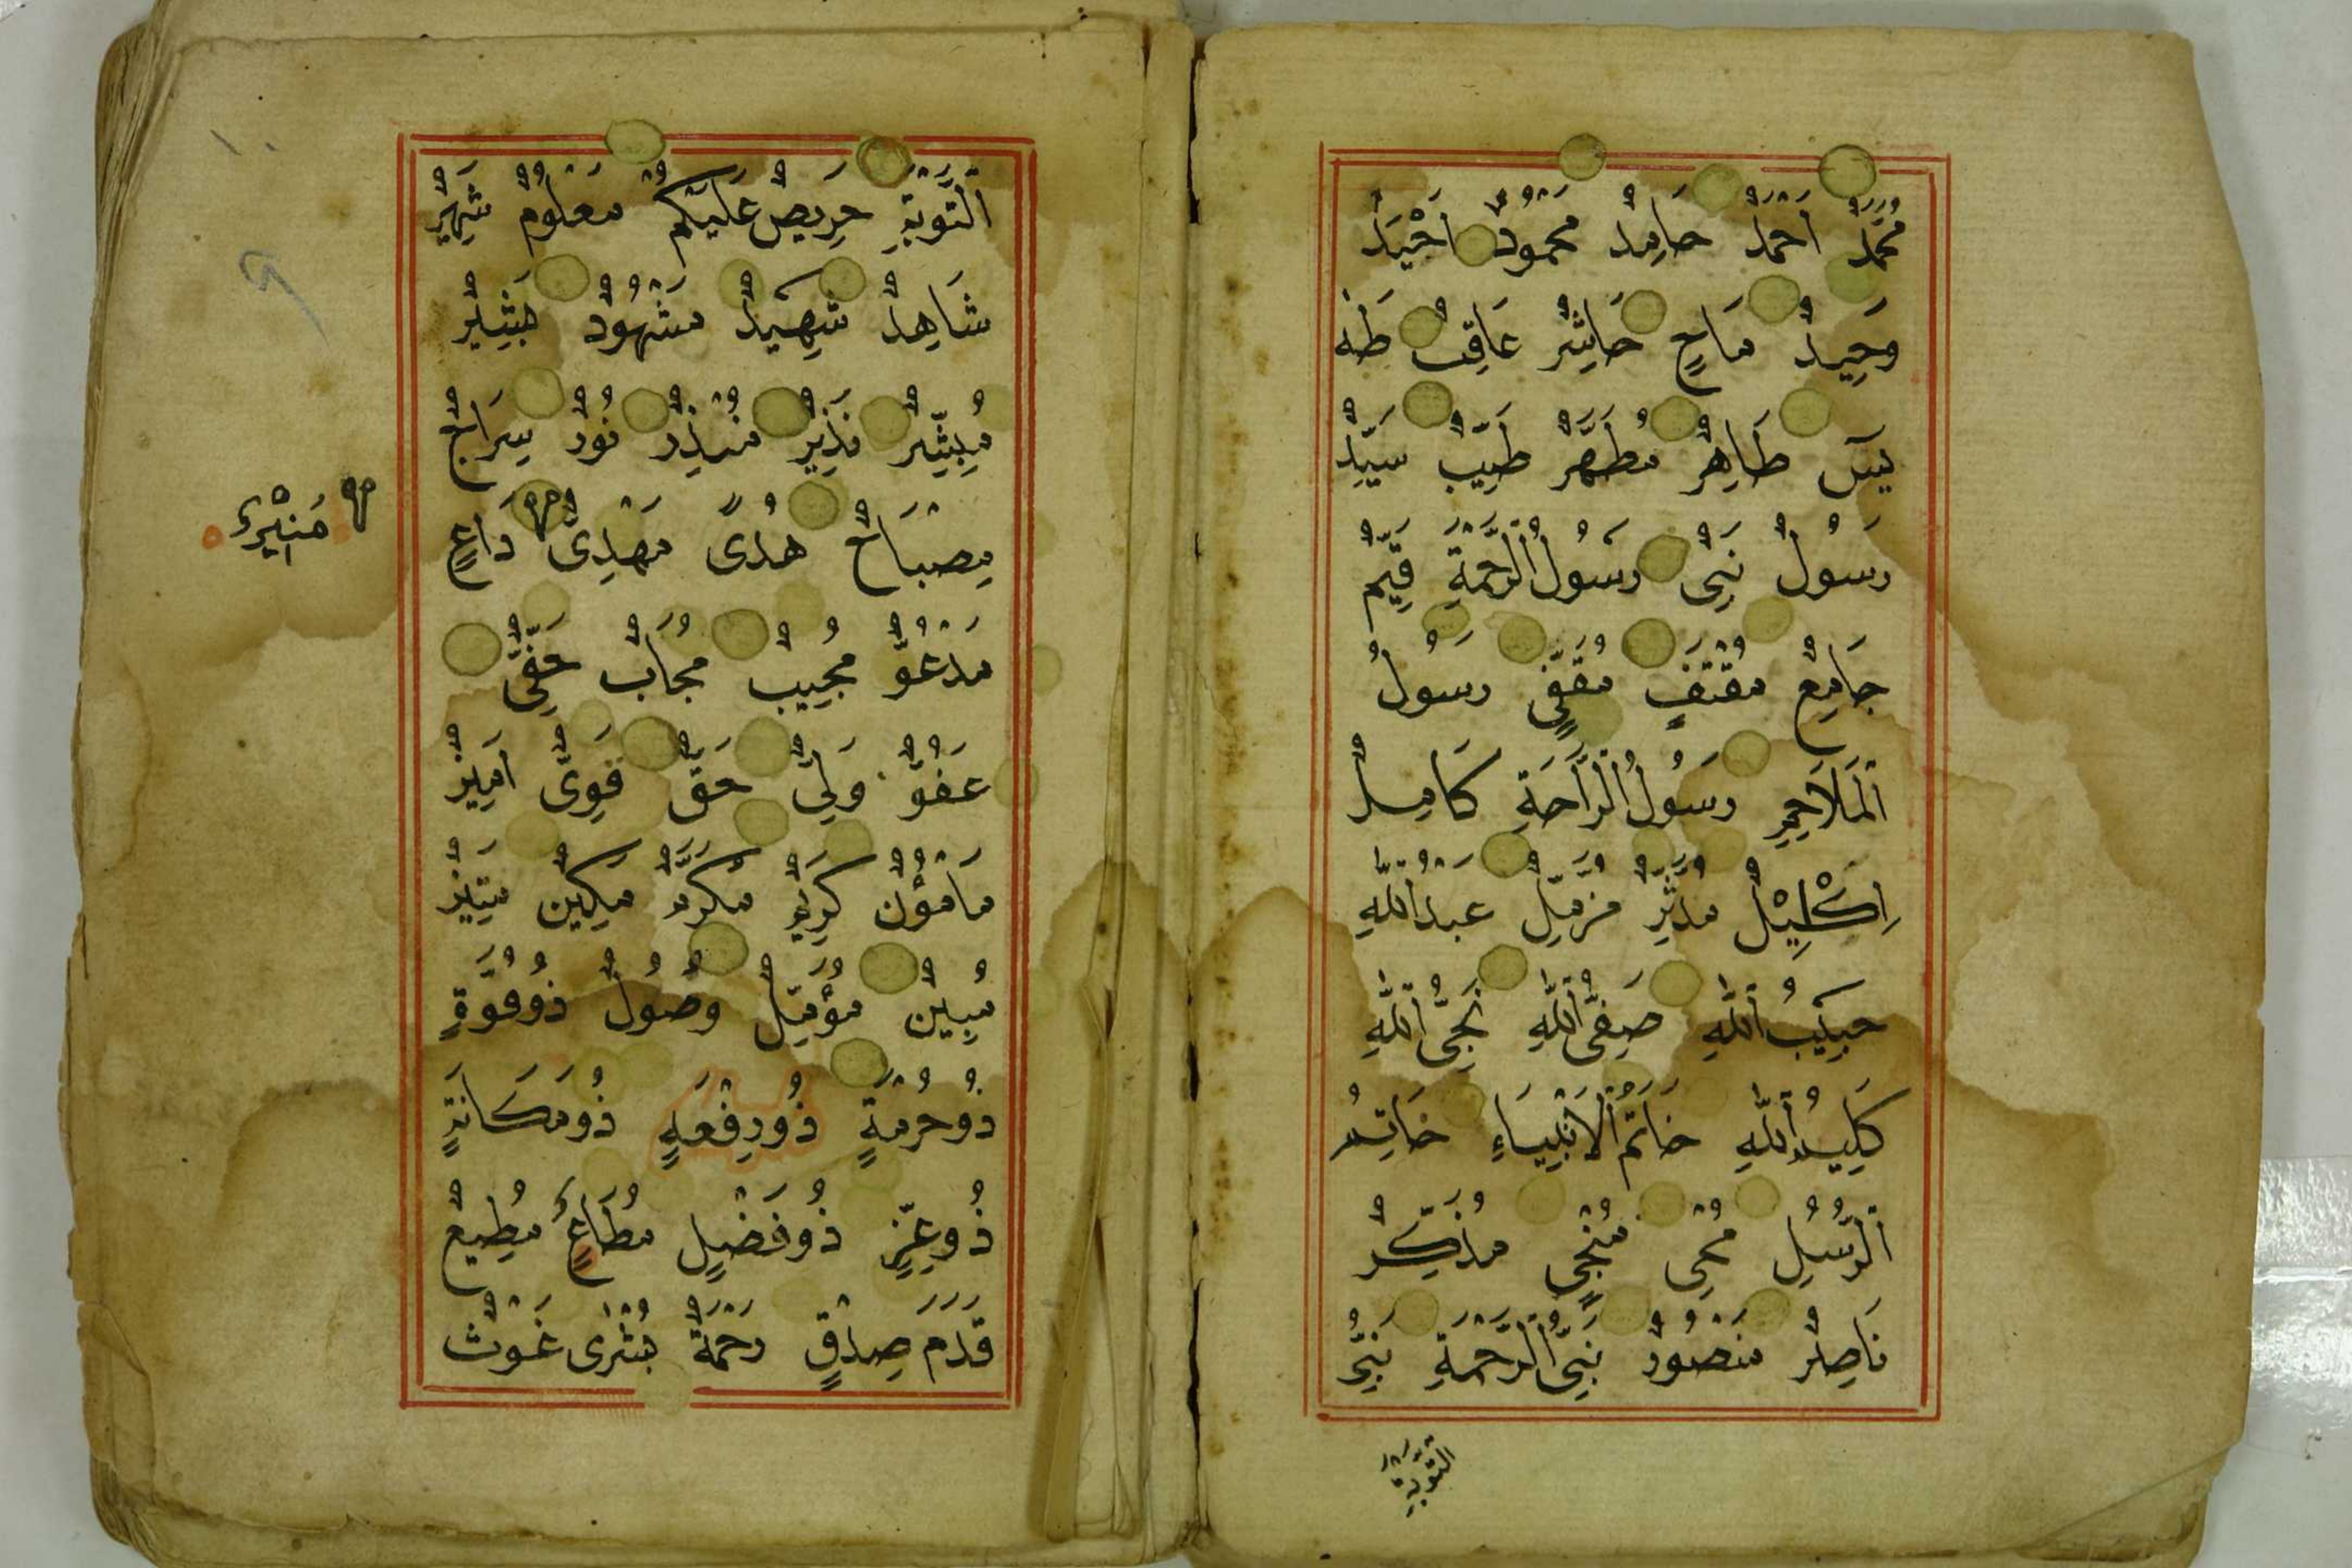 مُحَمَّدٌ أَحْمَدُ حَامِدٌ مَحْمُودٌ أَحْيَدُ
وَحِيدٌ مَاحٍ حَاشِرٌ عَاقِبٌ طٰهٰ
يٰسٓ طَاهِرٌ مُطَهَّرٌ طَيِّبٌ سَيِّدٌ
رَسُولٌ نَبِيٌّ رَسُولُ الرَّحْمَةِ قَيِّمٌ
جَامِعٌ مُقْتَفٍ مُقَفًّى رَسُولُ
الْمَلَاحِمِ رَسُولُ الرَّاحَةِ كَامِلٌ
إِكْلِيلٌ مُدَّثِّرٌ مُزَّمِّلٌ عَبْدُ اللّٰهِ
حَبِيبُ اللّٰهِ صَفِيُّ اللّٰهِ نَجِيُّ اللّٰهِ
كَلِيمُ اللّٰهِ خَاتَمُ الْأَنْبِيَاءِ خَاتِمُ
الرُّسُلِ مُحْيِي مُنْجِي مُذَكِّرٌ
نَاصِرٌ مَنْصُورٌ نَبِيُّ الرَّحْمَةِ نَبِيُّ
التَّوْبَةِ
التَّوْبَةِ حَرِيصٌ عَلَيْكُمْ مَعْلُومٌ شَهِيرٌ
شَاهِدٌ شَهِيدٌ مَشْهُودٌ بَشِيرٌ
مُبَشِّرٌ نَذِيرٌ مُنْذِرٌ نُورٌ سِرَاجٌ
مِصْبَاحٌ هُدًى مَهْدِيٌّ دَاعٍ
مُنِيرٌ
مَدْعُوٌّ مُجِيبٌ مُجَابٌ حَفِيٌّ
عَفُوٌّ وَلِيٌّ حَقٌّ قَوِيٌّ أَمِينٌ
مَأْمُونٌ كَرِيمٌ مُكَرَّمٌ مَكِينٌ مَتِينٌ
مُبِينٌ مُؤَمِّلٌ وَصُولٌ ذُو قُوَّةٍ
ذُو حُرْمَةٍ ذُو رِفْعَةٍ ذُو مَكَانَةٍ
ذُو عِزٍّ ذُو فَضْلٍ مُطَاعٌ مُطِيعٌ
قَدَمَ صِدْقٍ رَحْمَةٌ بُشْرَى غَوْثٌ